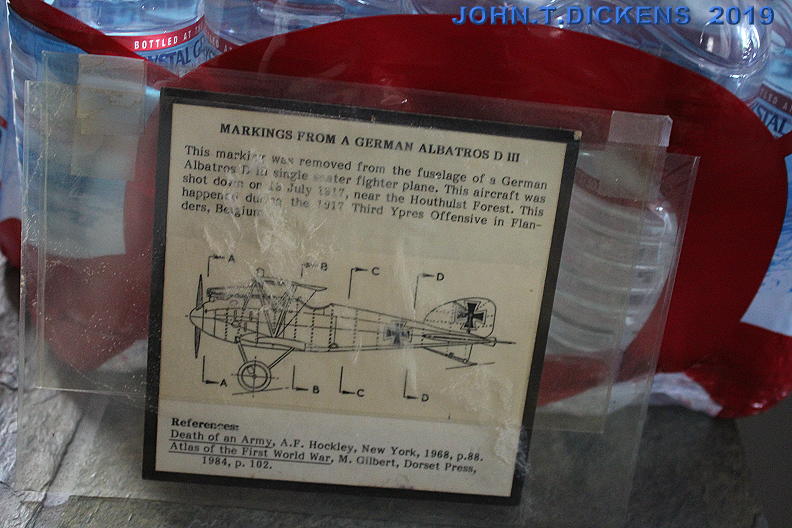 JOHN.T.DICKENS 2019
BOTTLED AT
MARKINGS FROM A GERMAN ALBATROS D III
This marking was removed from the fuselage of a German
Albatros D III single seater fighter plane. This aircraft was
shot down on July 1917, near the Houthulst Forest. This
happened during the 1917 Third Ypres Offensive in Flan-
ders, Belgium
A B C D
A B C D
References:
Death of an Army, A.F. Hockley, New York, 1968, p.88.
Atlas of the First World War, M. Gilbert, Dorset Press,
1984, p. 102.